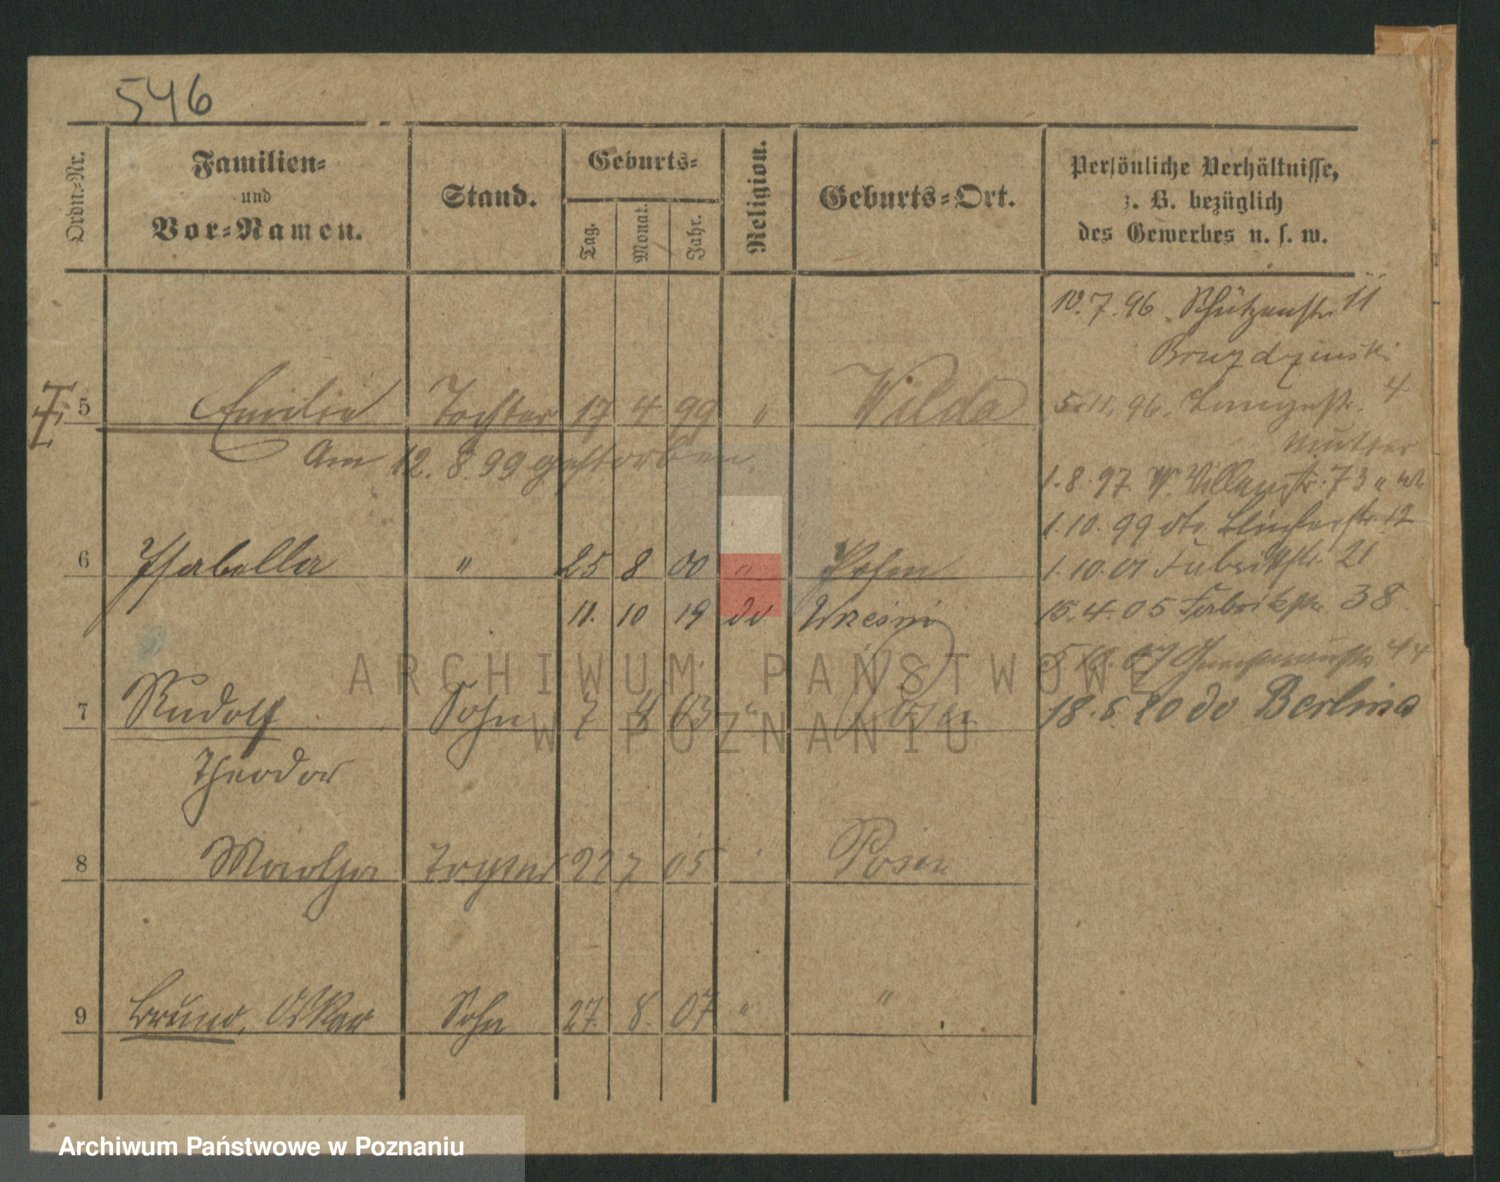 546
Ordn.-Nr.
Familien-
und
Vor-Namen.
Stand.
Geburts-
Tag.
Monat.
Jahr.
Religion.
Geburts-Ort.
Persönliche Verhältnisse,
z. B. bezüglich
des Gewerbes u. s. w.
10.7.96 Schützenstr. 11
5 Emilie Tochter 17 4 99 " Wilda
5.11.96. Langestr. 4
Mutter
Am 12.8.99 gestorben.
1.8.97. 73
1.10.99 12
6 Isabella " 25 8 00 " Posen
1.10.01 Fabrikstr. 21
11. 10 19 do
15.4.05 Fabrikstr. 38
44
7 Rudolf Sohn 7 4 03 "
18.5.20 do Berlina
Theodor
8 Martha Tochter 22 7 05 Posen
9 Bruno, Oskar Sohn 27. 8. 07 " "
ARCHIWUM PAŃSTWOWE
W POZNANIU
Archiwum Państwowe w Poznaniu